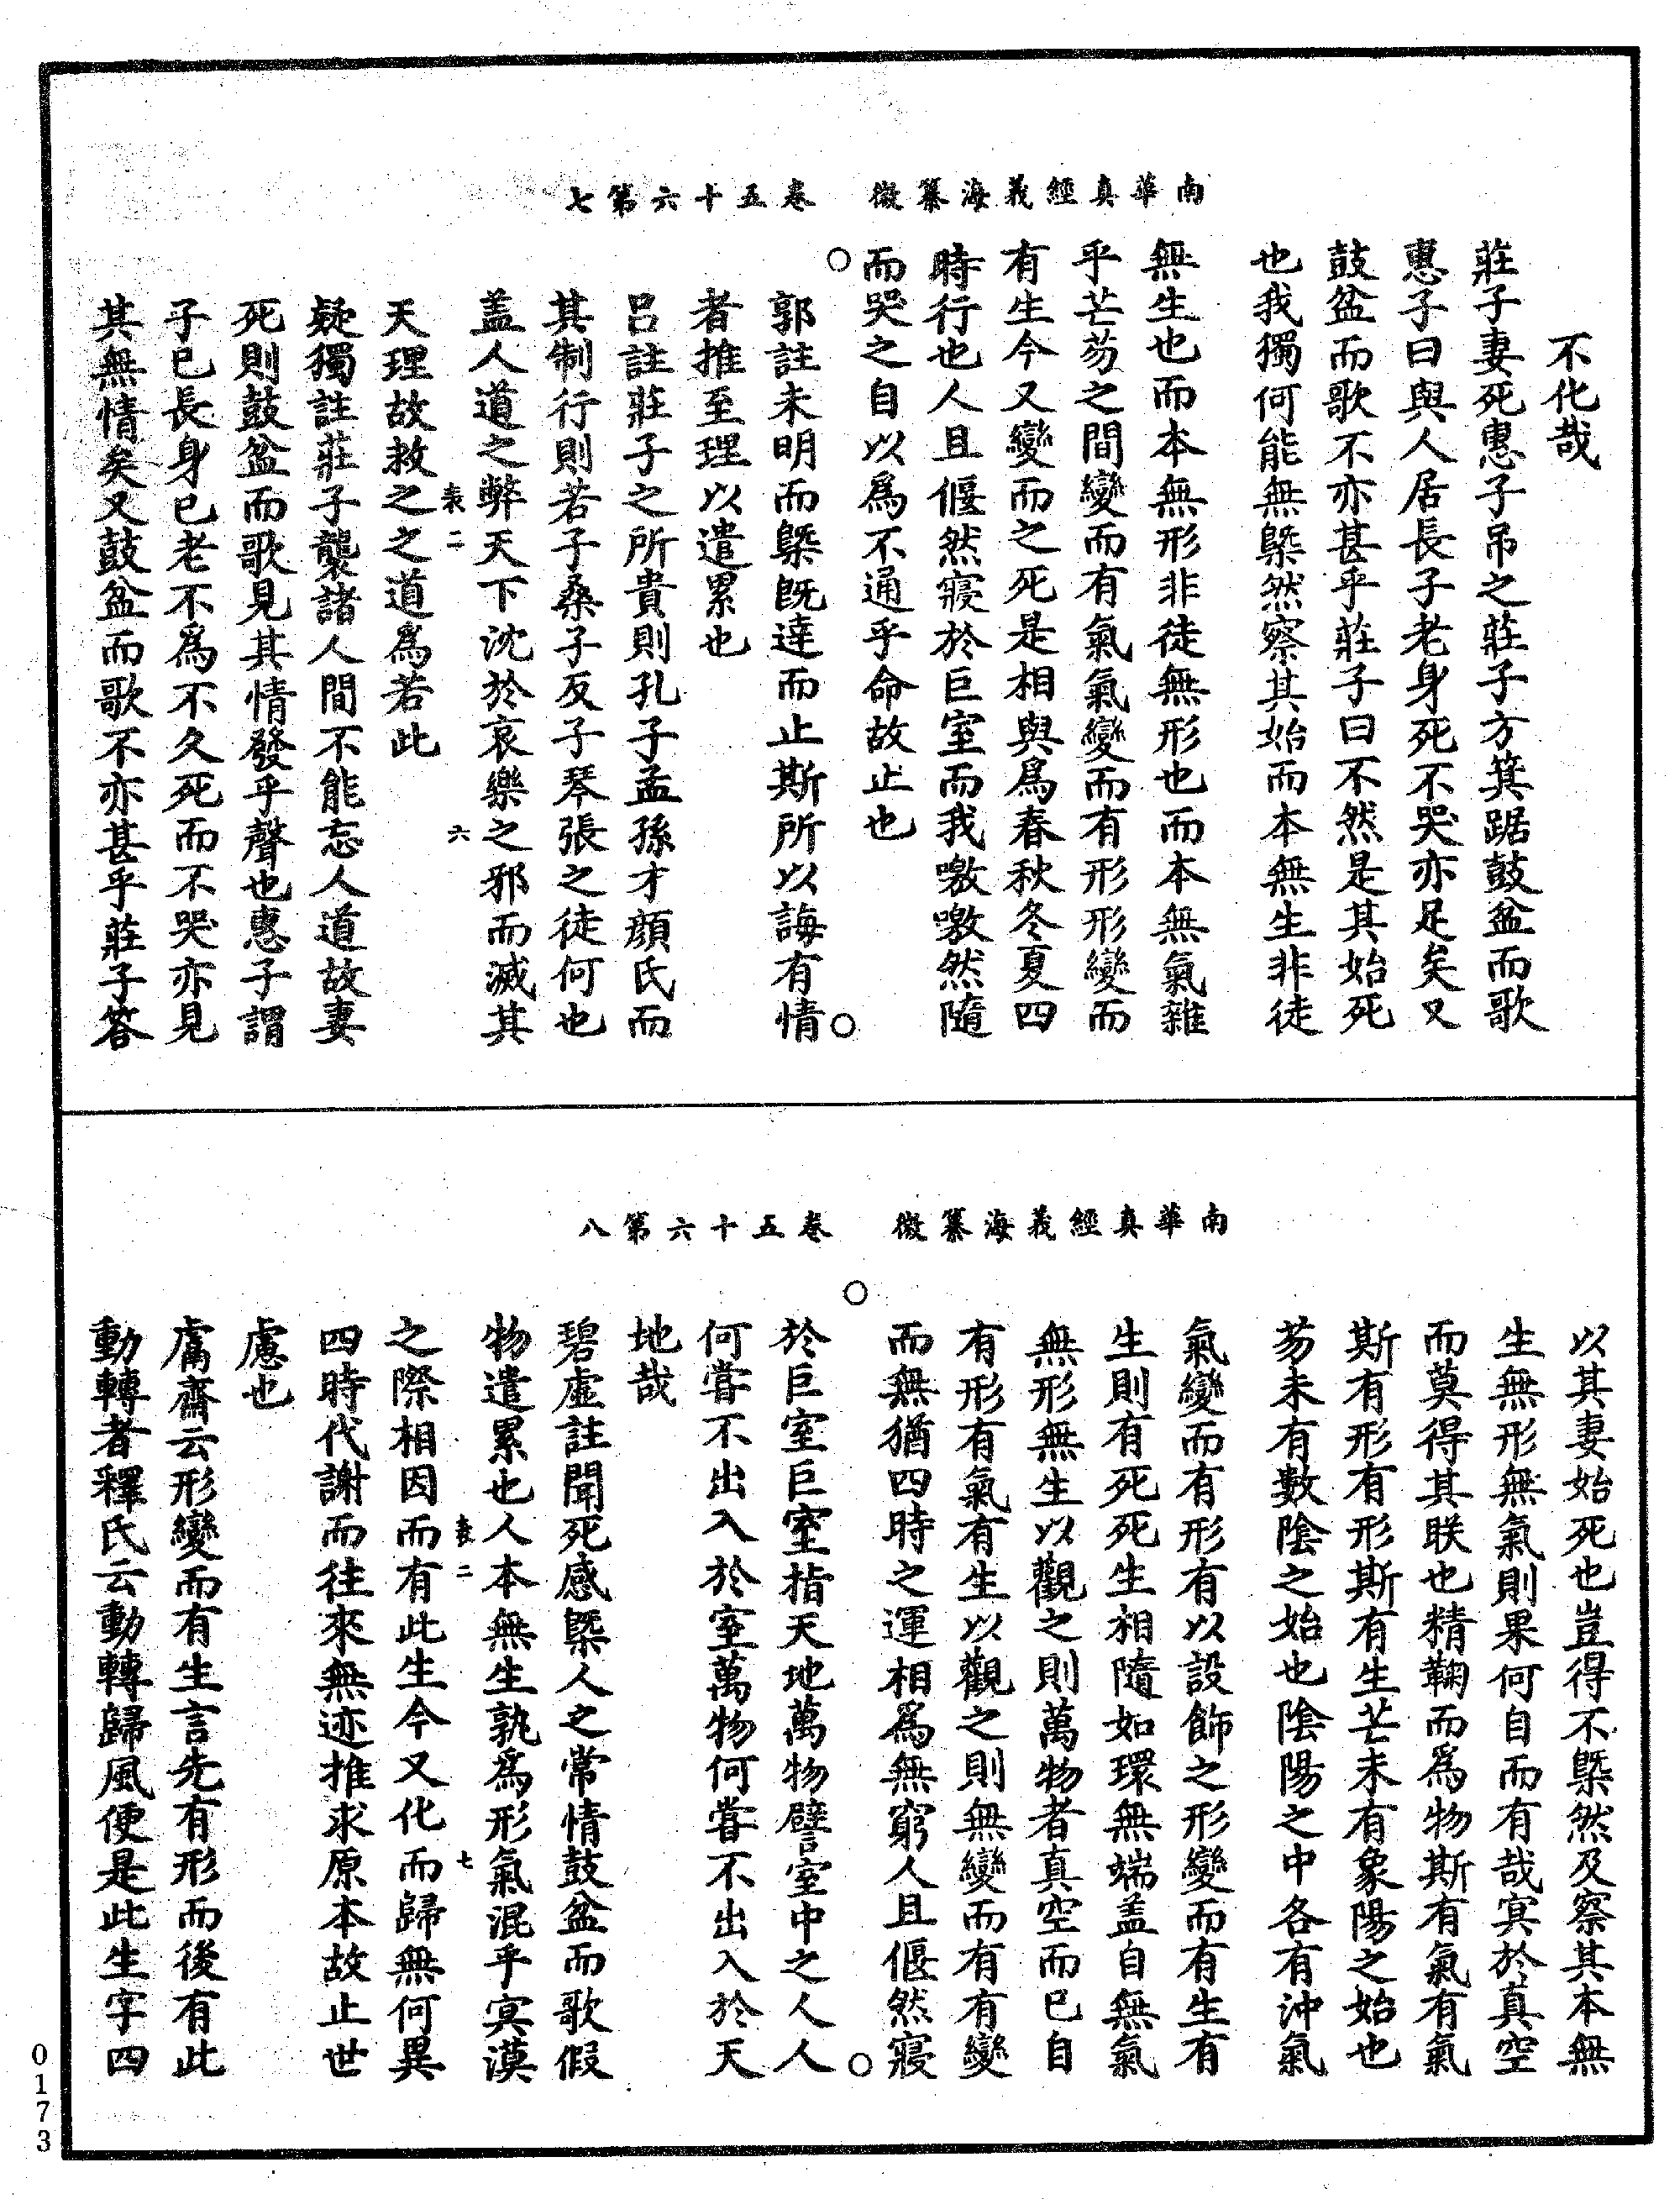 南華真經義海纂微　卷五十六第七
不化哉
莊子妻死惠子吊之莊子方箕踞鼓盆而歌
惠子曰與人居長子老身死不哭亦足矣又
鼓盆而歌不亦甚乎莊子曰不然是其始死
也我獨何能無槩然察其始而本無生非徒
無生也而本無形非徒無形也而本無氣雜
乎芒芴之間變而有氣氣變而有形形變而
有生今又變而之死是相與爲春秋冬夏四
時行也人且偃然寢於巨室而我噭噭然隨
而哭之自以爲不通乎命故止也
郭註未明而槩旣達而止斯所以誨有情
者推至理以遣累也
呂註莊子之所貴則孔子孟孫才顏氏而
其制行則若子桑子反子琴張之徒何也
盖人道之弊天下沈於哀樂之邪而滅其
袠二　六
天理故救之之道爲若此
疑獨註莊子襲諸人間不能忘人道故妻
死則鼓盆而歌見其情發乎聲也惠子謂
子已長身已老不爲不久死而不哭亦見
其無情矣又鼓盆而歌不亦甚乎莊子答
南華真經義海纂微　卷五十六第八
以其妻始死也豈得不槩然及察其本無
生無形無氣則果何自而有哉冥於真空
而莫得其眹也精鞠而爲物斯有氣有氣
斯有形有形斯有生芒未有象陽之始也
芴未有數陰之始也陰陽之中各有沖氣
氣變而有形有以設飾之形變而有生有
生則有死死生相隨如環無端盖自無氣
無形無生以觀之則萬物者真空而已自
有形有氣有生以觀之則無變而有有變
而無猶四時之運相爲無窮人且偃然寢
於巨室巨室指天地萬物譬室中之人人
何嘗不出入於室萬物何嘗不出入於天
地哉
碧虛註聞死感槩人之常情鼓盆而歌假
物遣累也人本無生孰爲形氣混乎冥漠
袠二　七
之際相因而有此生今又化而歸無何異
四時代謝而往來無迹推求原本故止世
慮也
鬳齋云形變而有生言先有形而後有此
動轉者釋氏云動轉歸風便是此生字四
0173